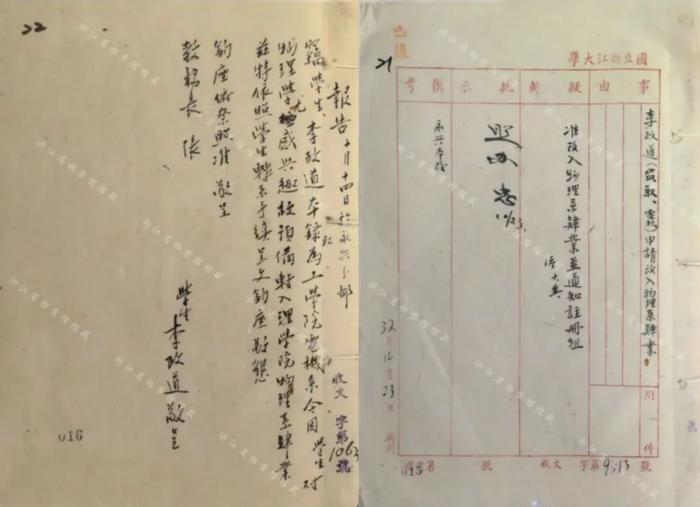 22
報告 十月十四日於永興分部
竊學生李政道本錄取為工學院電機系今因學生對
物理學尤感興趣故預備轉入理學院物理系肄業
茲特依照學生轉系手續呈文鈞座敬懇
鈞座俯察照准敬呈
教務長 張
學生 李政道敬呈
收文 字第1063號
016
21
國立浙江大學
事由
擬辦
批示
備考
附件
李政道(錄取、電機)申請改入物理系肄業
准改入物理系肄業並通知註冊組
照办
永興本錢
32年10月23日
收文 字第 號
浙江省档案馆馆藏